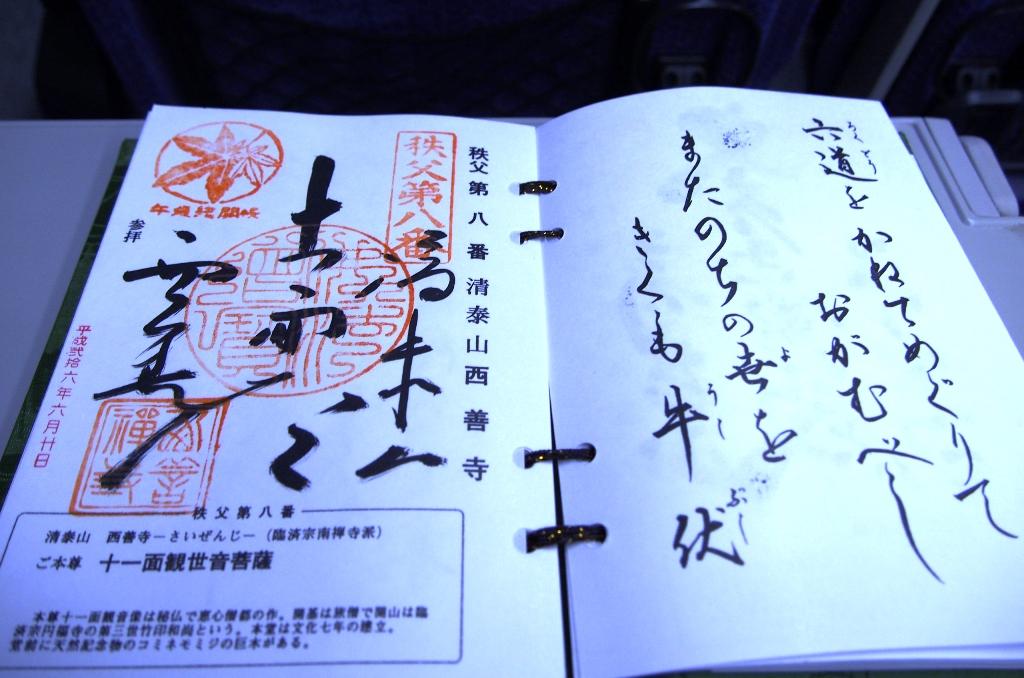 六道を
かねてめぐりて
おがむべし
またのちの世を
きくも牛伏
ろくどう
よ
うし
ぶし
秩父第八番 清泰山西善寺
秩父第八番
参拝
平成弐拾六年六月廿日
秩父第八番
清泰山 西善寺―さいぜんじ―（臨済宗南禅寺派）
ご本尊 十一面観世音菩薩
本尊十一面観音像は秘仏で恵心僧都の作。開基は旅僧で開山は臨
済宗円福寺の第三世竹印和尚という。本堂は文化七年の建立。
堂前に天然記念物のコミネモミジの巨木がある。